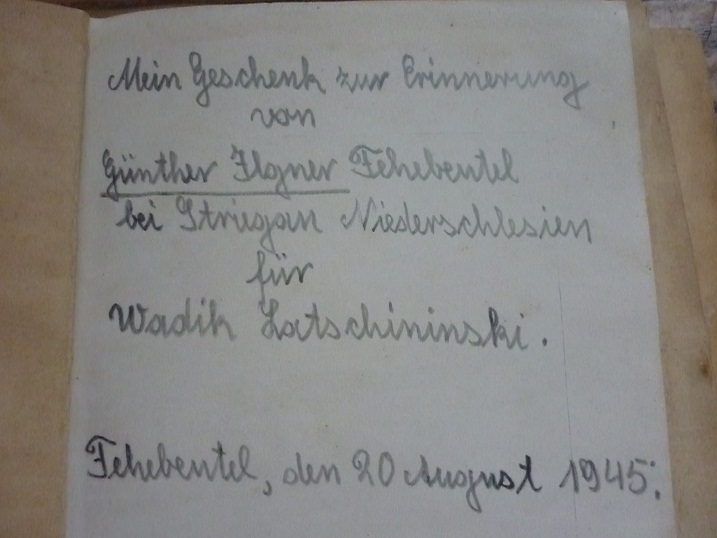 Mein Geschenk zur Erinnerung
von
Günther Ilgner Fehebeutel
bei Striegau Niederschlesien
für
Wadik Latschininski.
Fehebeutel, den 20 August 1945.